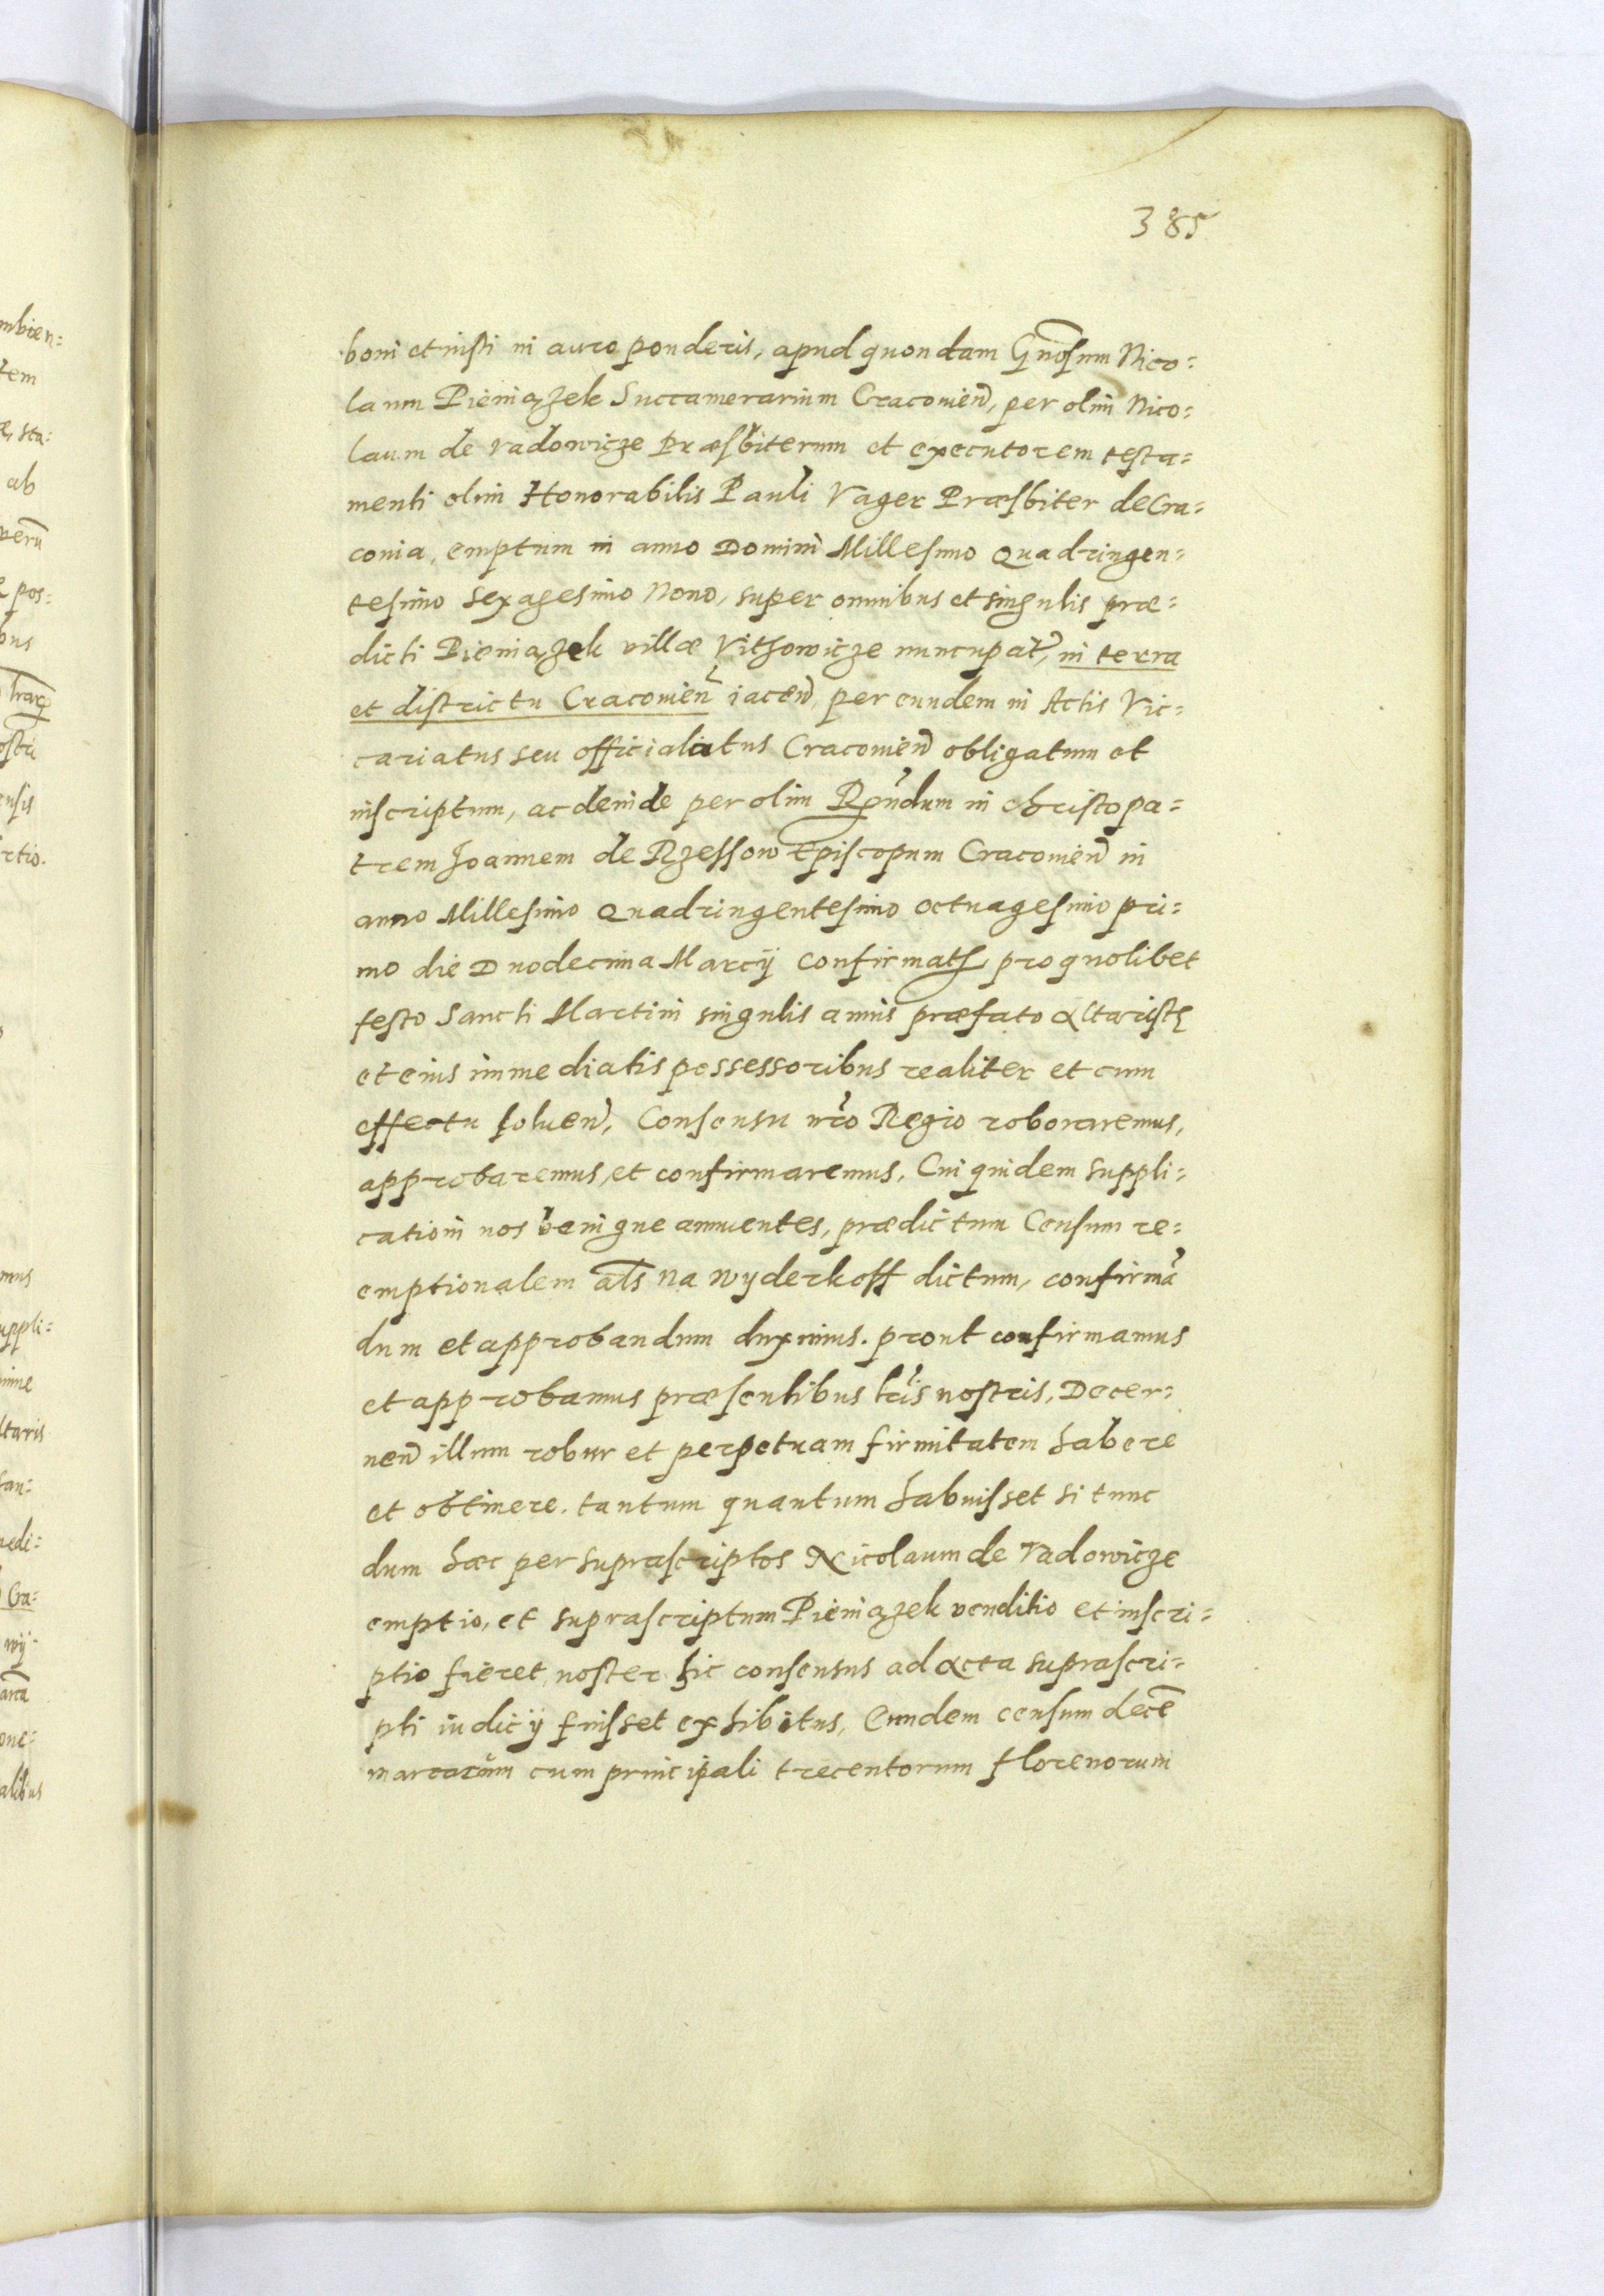 385
boni et iusti in auro ponderis, apud quondam Gn̄osum Nico:
laum Pieniązek Succamerarium Cracouień, per olim Nico:
laum de Vadowicze Præsbiterum et executorem testa:
menti olim Honorabilis Pauli Vager Præsbiter de Cra:
couia, emptum in anno Domini Millesimo Quadringen:
tesimo Sexagesimo Nono, super omnibus et singulis præ:
dicti Pieniązek villæ Vithowicze nuncupat̃, in terra
et districtu Cracouień iaceń, per eundem in Actis Vic:
cariatus seu officialiatus Cracouień obligatum et
inscriptum, ac deinde per olim Rṇdum in christo pa:
trem Joannem de Rzessow Episcopum Cracouień in
anno Millesimo Quadringentesimo octuagesimo pri:
mo die Duodecima Marcÿ confirmat, pro quolibet
festo Sancti Martini singulis annis præfato altaristę
et eius immediatis possessoribus realiter et cum
effectu soluen̄, Consensu nr̃o Regio roboraremus,
approbaremus, et confirmaremus, Cui quidem suppli:
cationi nos benigne annuentes, prædictum Censum re:
emptionalem al̄s na wyderkoff dictum, confirmã
dum et approbandum duximus. prout confirmamus
et approbamus præsentibus lr̃is nostris, Decer:
neń illum robur et perpetuam firmitatem habere
et obtinere, tantum quantum habuisset si tunc
dum hæc per suprascriptos Nicolaum de Vadowicze
emptio, et suprascriptum Pieniązek venditio et inscri:
ptio fieret, noster hic consensus ad acta suprascri:
pti iudicÿ fuisset exhibitus, Eundem censum decē
marcarum cum principali trecentorum florenorum
ab